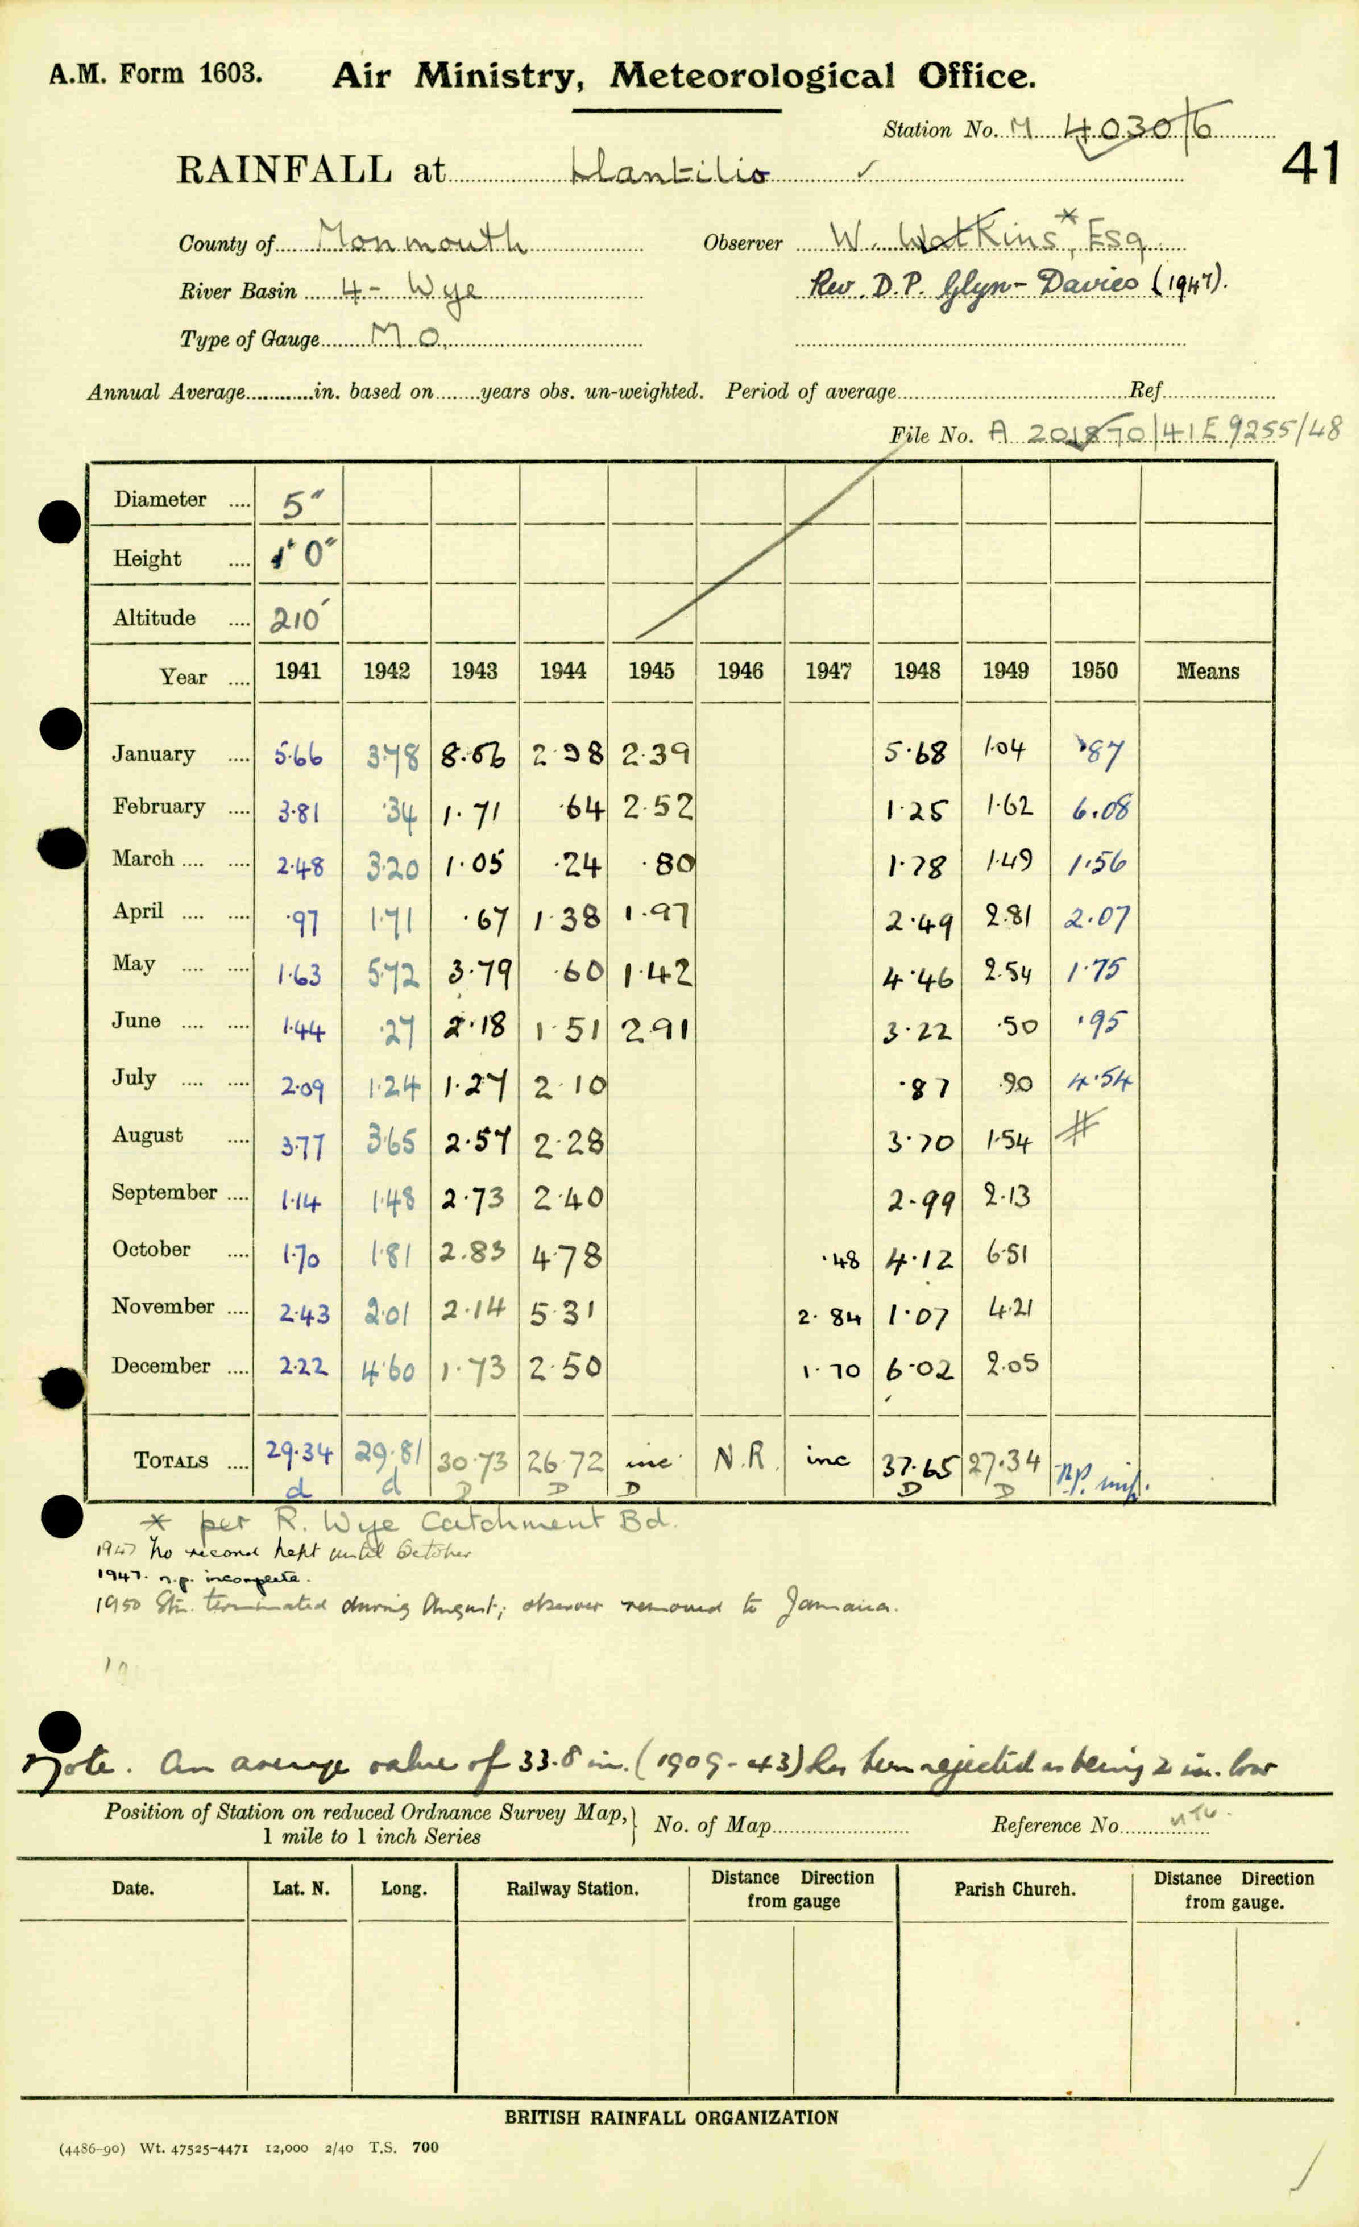 A.M. Form 1603. Air Ministry, Meteorological Office.
Station No. M 4030/6
41
RAINFALL at Llantilio ✓
County of Monmouth Observer W. Watkins*, Esq
River Basin 4 - Wye Rev. D.P. Glyn-Davies (1947).
Type of Gauge M.O.
Annual Average............in. based on........years obs. un-weighted. Period of average........ Ref........
File No. A 201870/41 E 9255/48
Diameter .... 5"
Height .... 1' 0"
Altitude .... 210'
Year .... 1941 1942 1943 1944 1945 1946 1947 1948 1949 1950 Means
January .... 5.66 3.78 8.06 2.98 2.39 5.68 1.04 .87
February .... 3.81 .34 1.71 .64 2.52 1.25 1.62 6.08
March .... .... 2.48 3.20 1.05 .24 .80 1.78 1.49 1.56
April .... .... .97 1.71 .67 1.38 1.97 2.49 2.81 2.07
May .... .... 1.63 5.72 3.79 .60 1.42 4.46 2.54 1.75
June .... .... 1.44 .27 2.18 1.51 2.91 3.22 .50 .95
July .... .... 2.09 1.24 1.27 2.10 .87 .90 4.54
August .... 3.77 3.65 2.57 2.28 3.70 1.54 #
September .... 1.14 1.48 2.73 2.40 2.99 2.13
October .... 1.70 1.81 2.83 4.78 .48 4.12 6.51
November .... 2.43 2.01 2.14 5.31 2.84 1.07 4.21
December .... 2.22 4.60 1.73 2.50 1.70 6.02 2.05
TOTALS .... 29.34 29.81 30.73 26.72 inc N.R. inc 37.65 27.34 n.p. inc.
d d D D D D D
* per R. Wye Catchment Bd.
1947 No record kept until October
1947. n.p. incomplete.
1950 Stn. terminated during August; observer removed to Jamaica.
Note. An average value of 33.8 in. (1909-43) has been rejected as being 2 in. low
Position of Station on reduced Ordnance Survey Map, 1 mile to 1 inch Series } No. of Map........ Reference No........
Date. Lat. N. Long. Railway Station. Distance Direction from gauge Parish Church. Distance Direction from gauge.
BRITISH RAINFALL ORGANIZATION
(4486-90) Wt. 47525-4471 12,000 2/40 T.S. 700